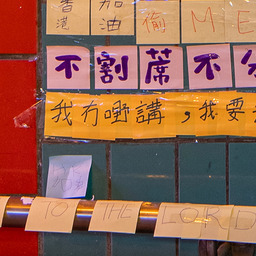 香港 加油 偷 M E
不割蓆不分
我冇嘢講，我要去
TO THE LORD